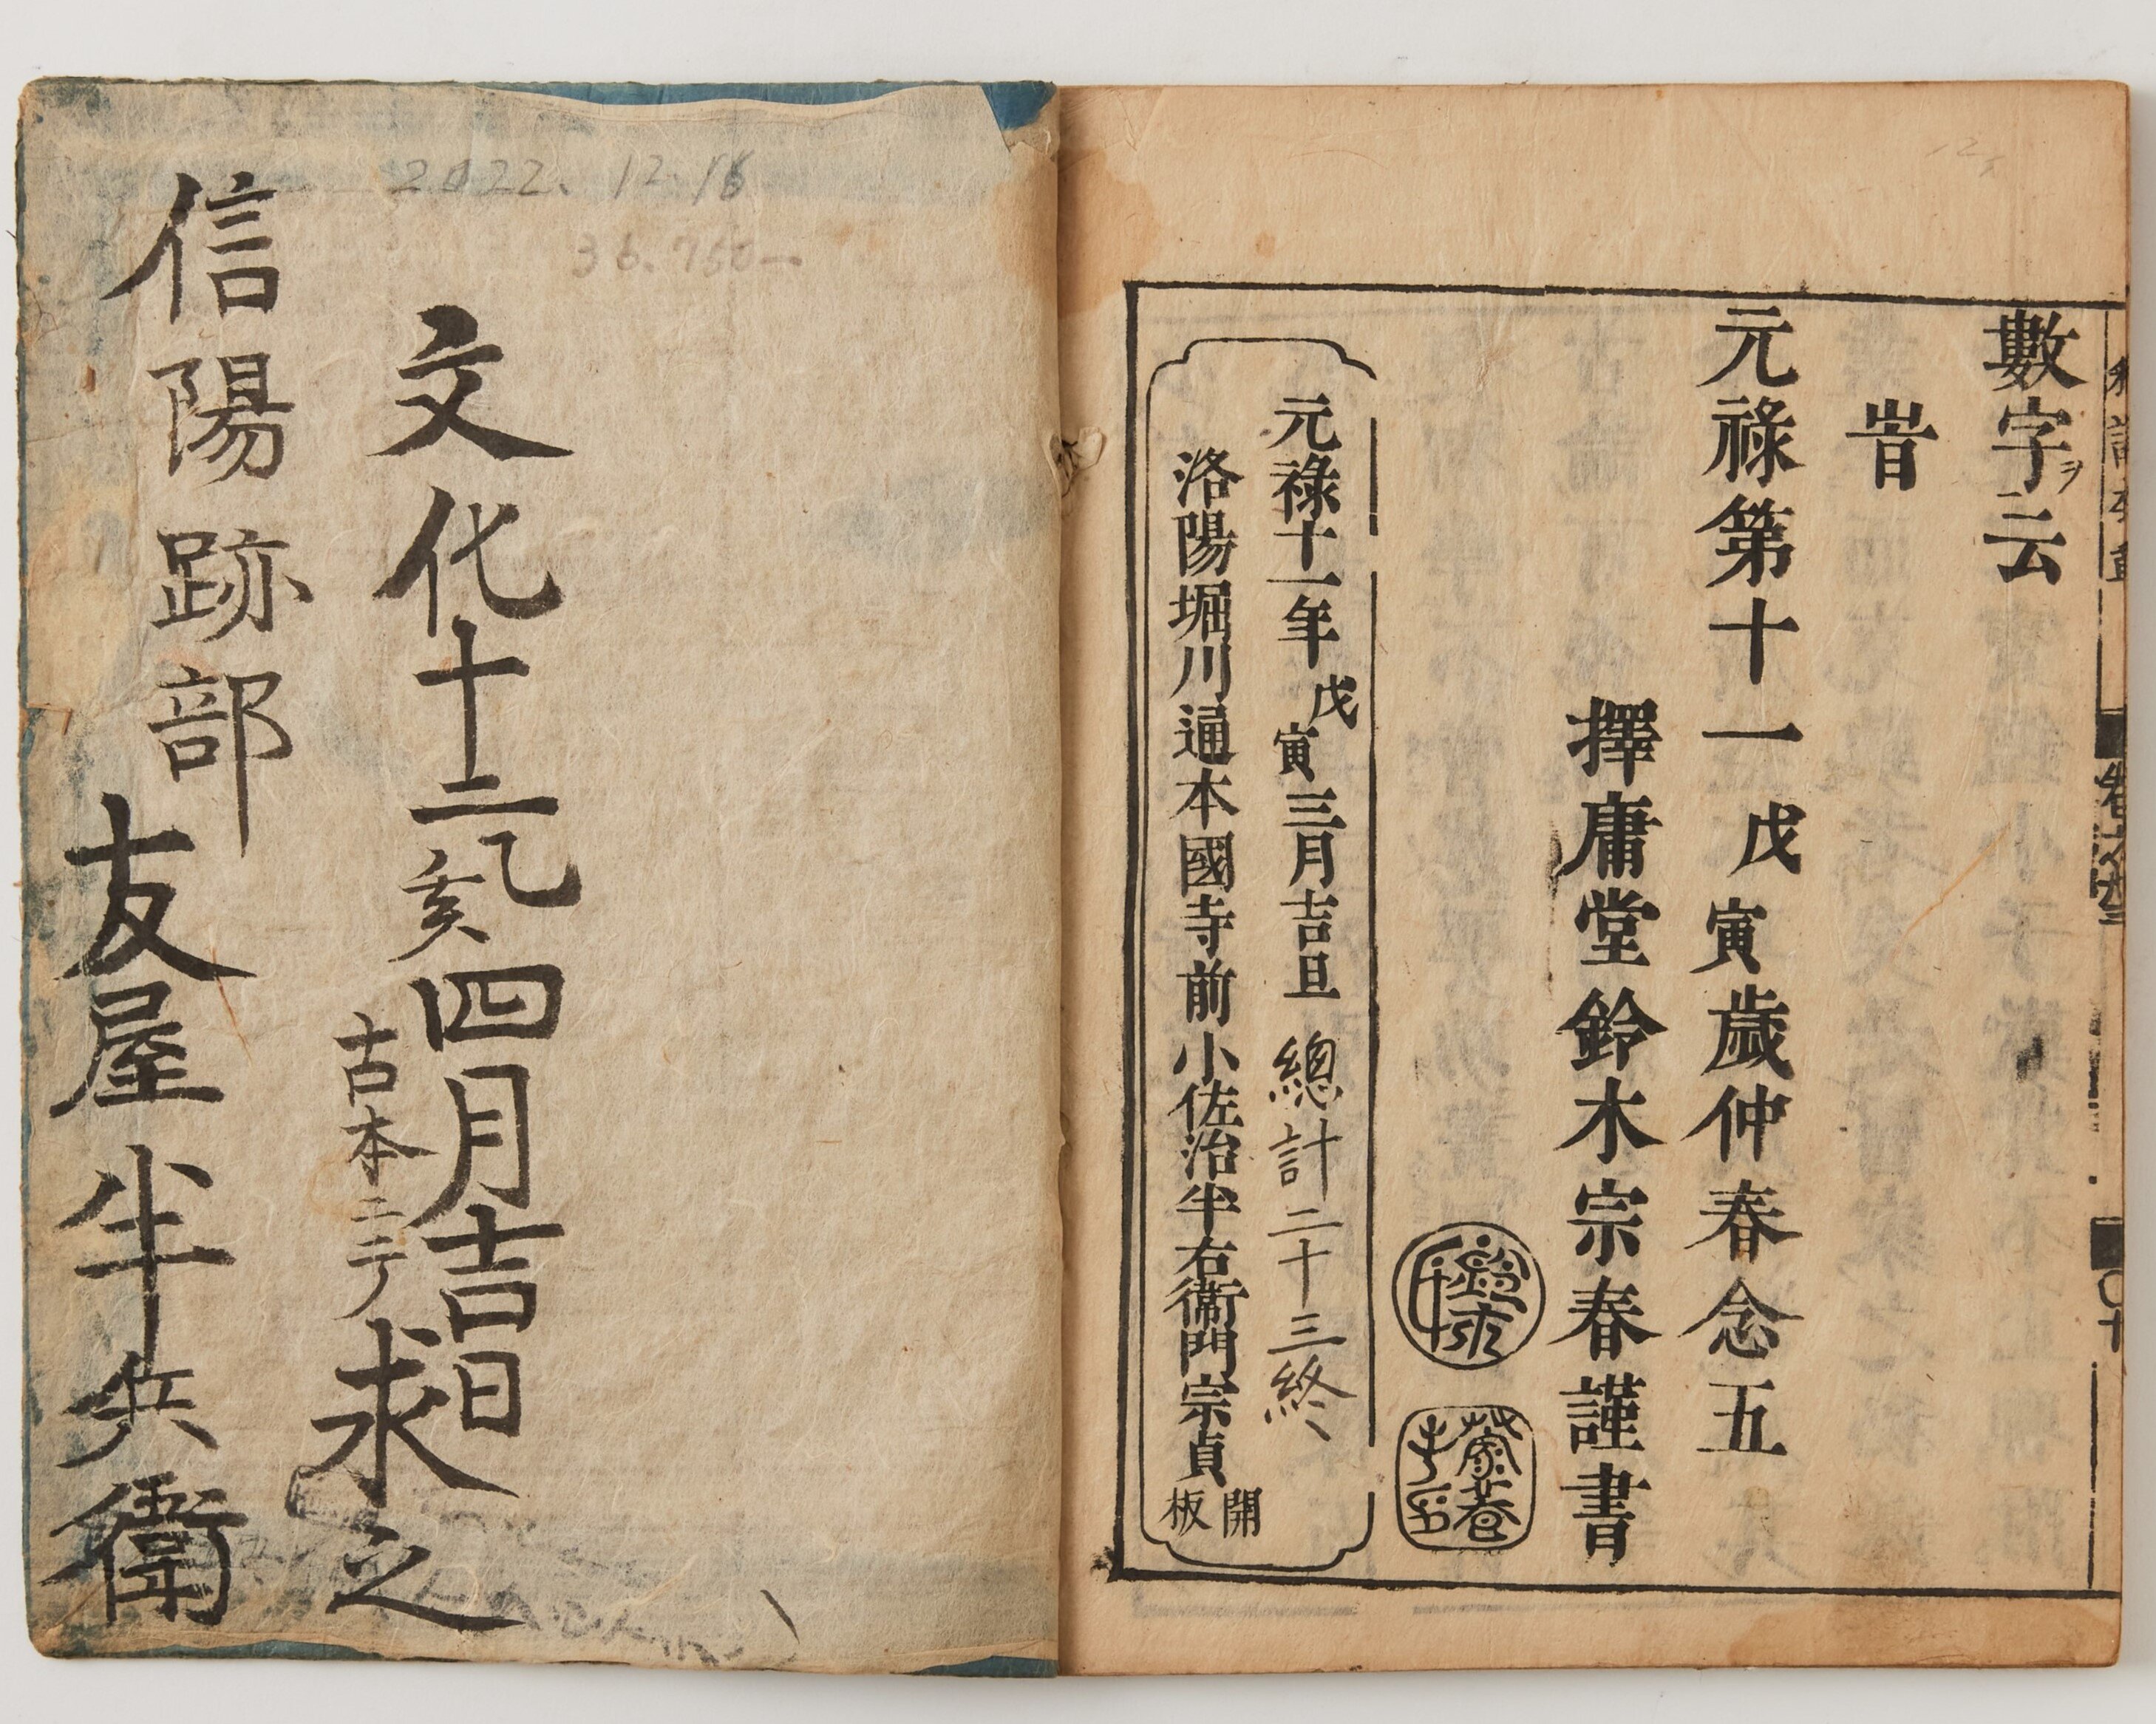 數字ヲ云
旹
元祿第十一戊寅歲仲春念五
擇庸堂鈴木宗春謹書
元祿十一年戊寅三月吉旦
總計二十三終
洛陽堀川通本國寺前小佐治半右衞門宗貞開板
2022.12.16
36.750—
文化十二乙亥四月吉日
古本二テ
求之
信陽跡部
友屋半兵衛